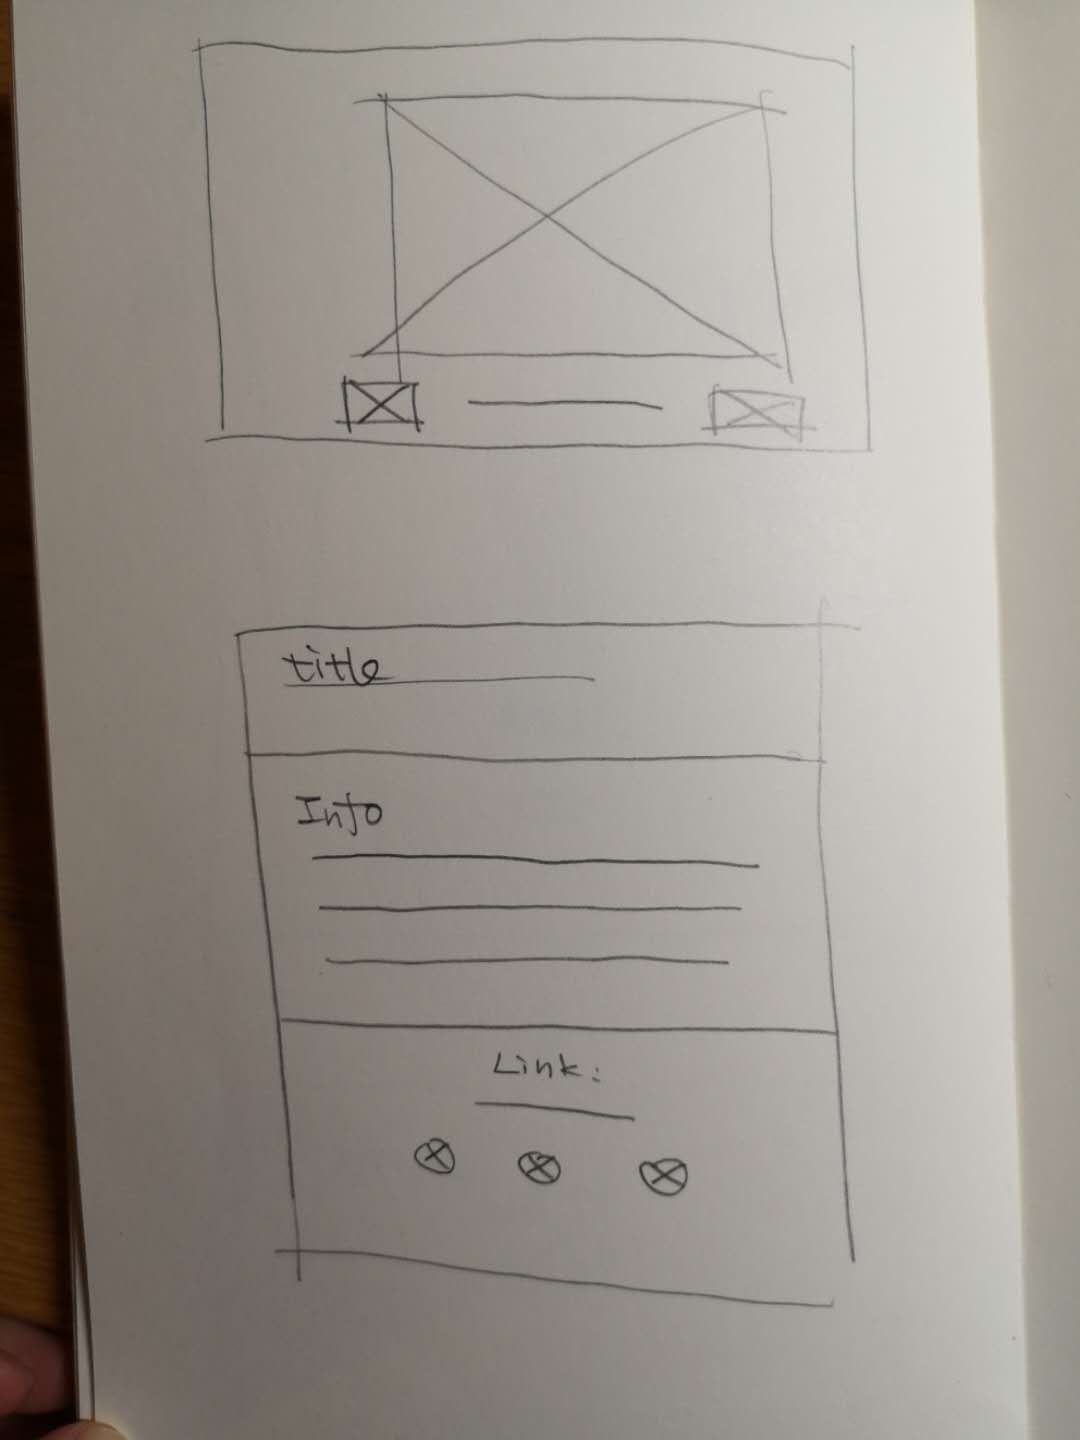 title
Info
Link: